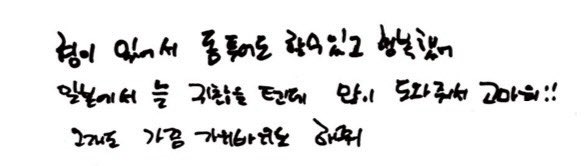 형이 있어서 동투어도 할수있고 행복했어
일본에서 늘 귀찮을 텐데 많이 도와줘서 고마워!!
그래도 가끔 가위바위보 해줘